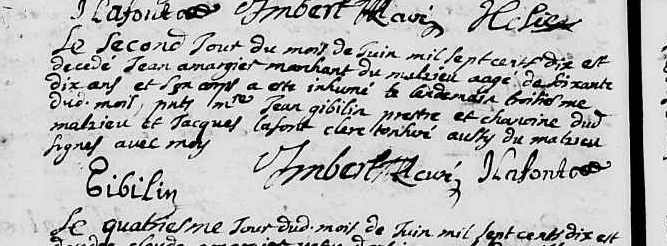 JLafont Imbert Curé
Le second Jour du mois de Juin mil sept cents dix est
decedé Jean amargier marchant du malzieu aagé de soixante
dix ans et son corps a este inhumé le lendemain troisiesme
dud. mois, pnts mre Jean gibilin prestre et chanoine dud
malzieu et Jacques lafont clerc tonsuré aussy du malzieu
signes avec moy
Imbert Curé JLafont
Gibilin
Le quatriesme Jour dud. mois de Juin mil sept cents dix est